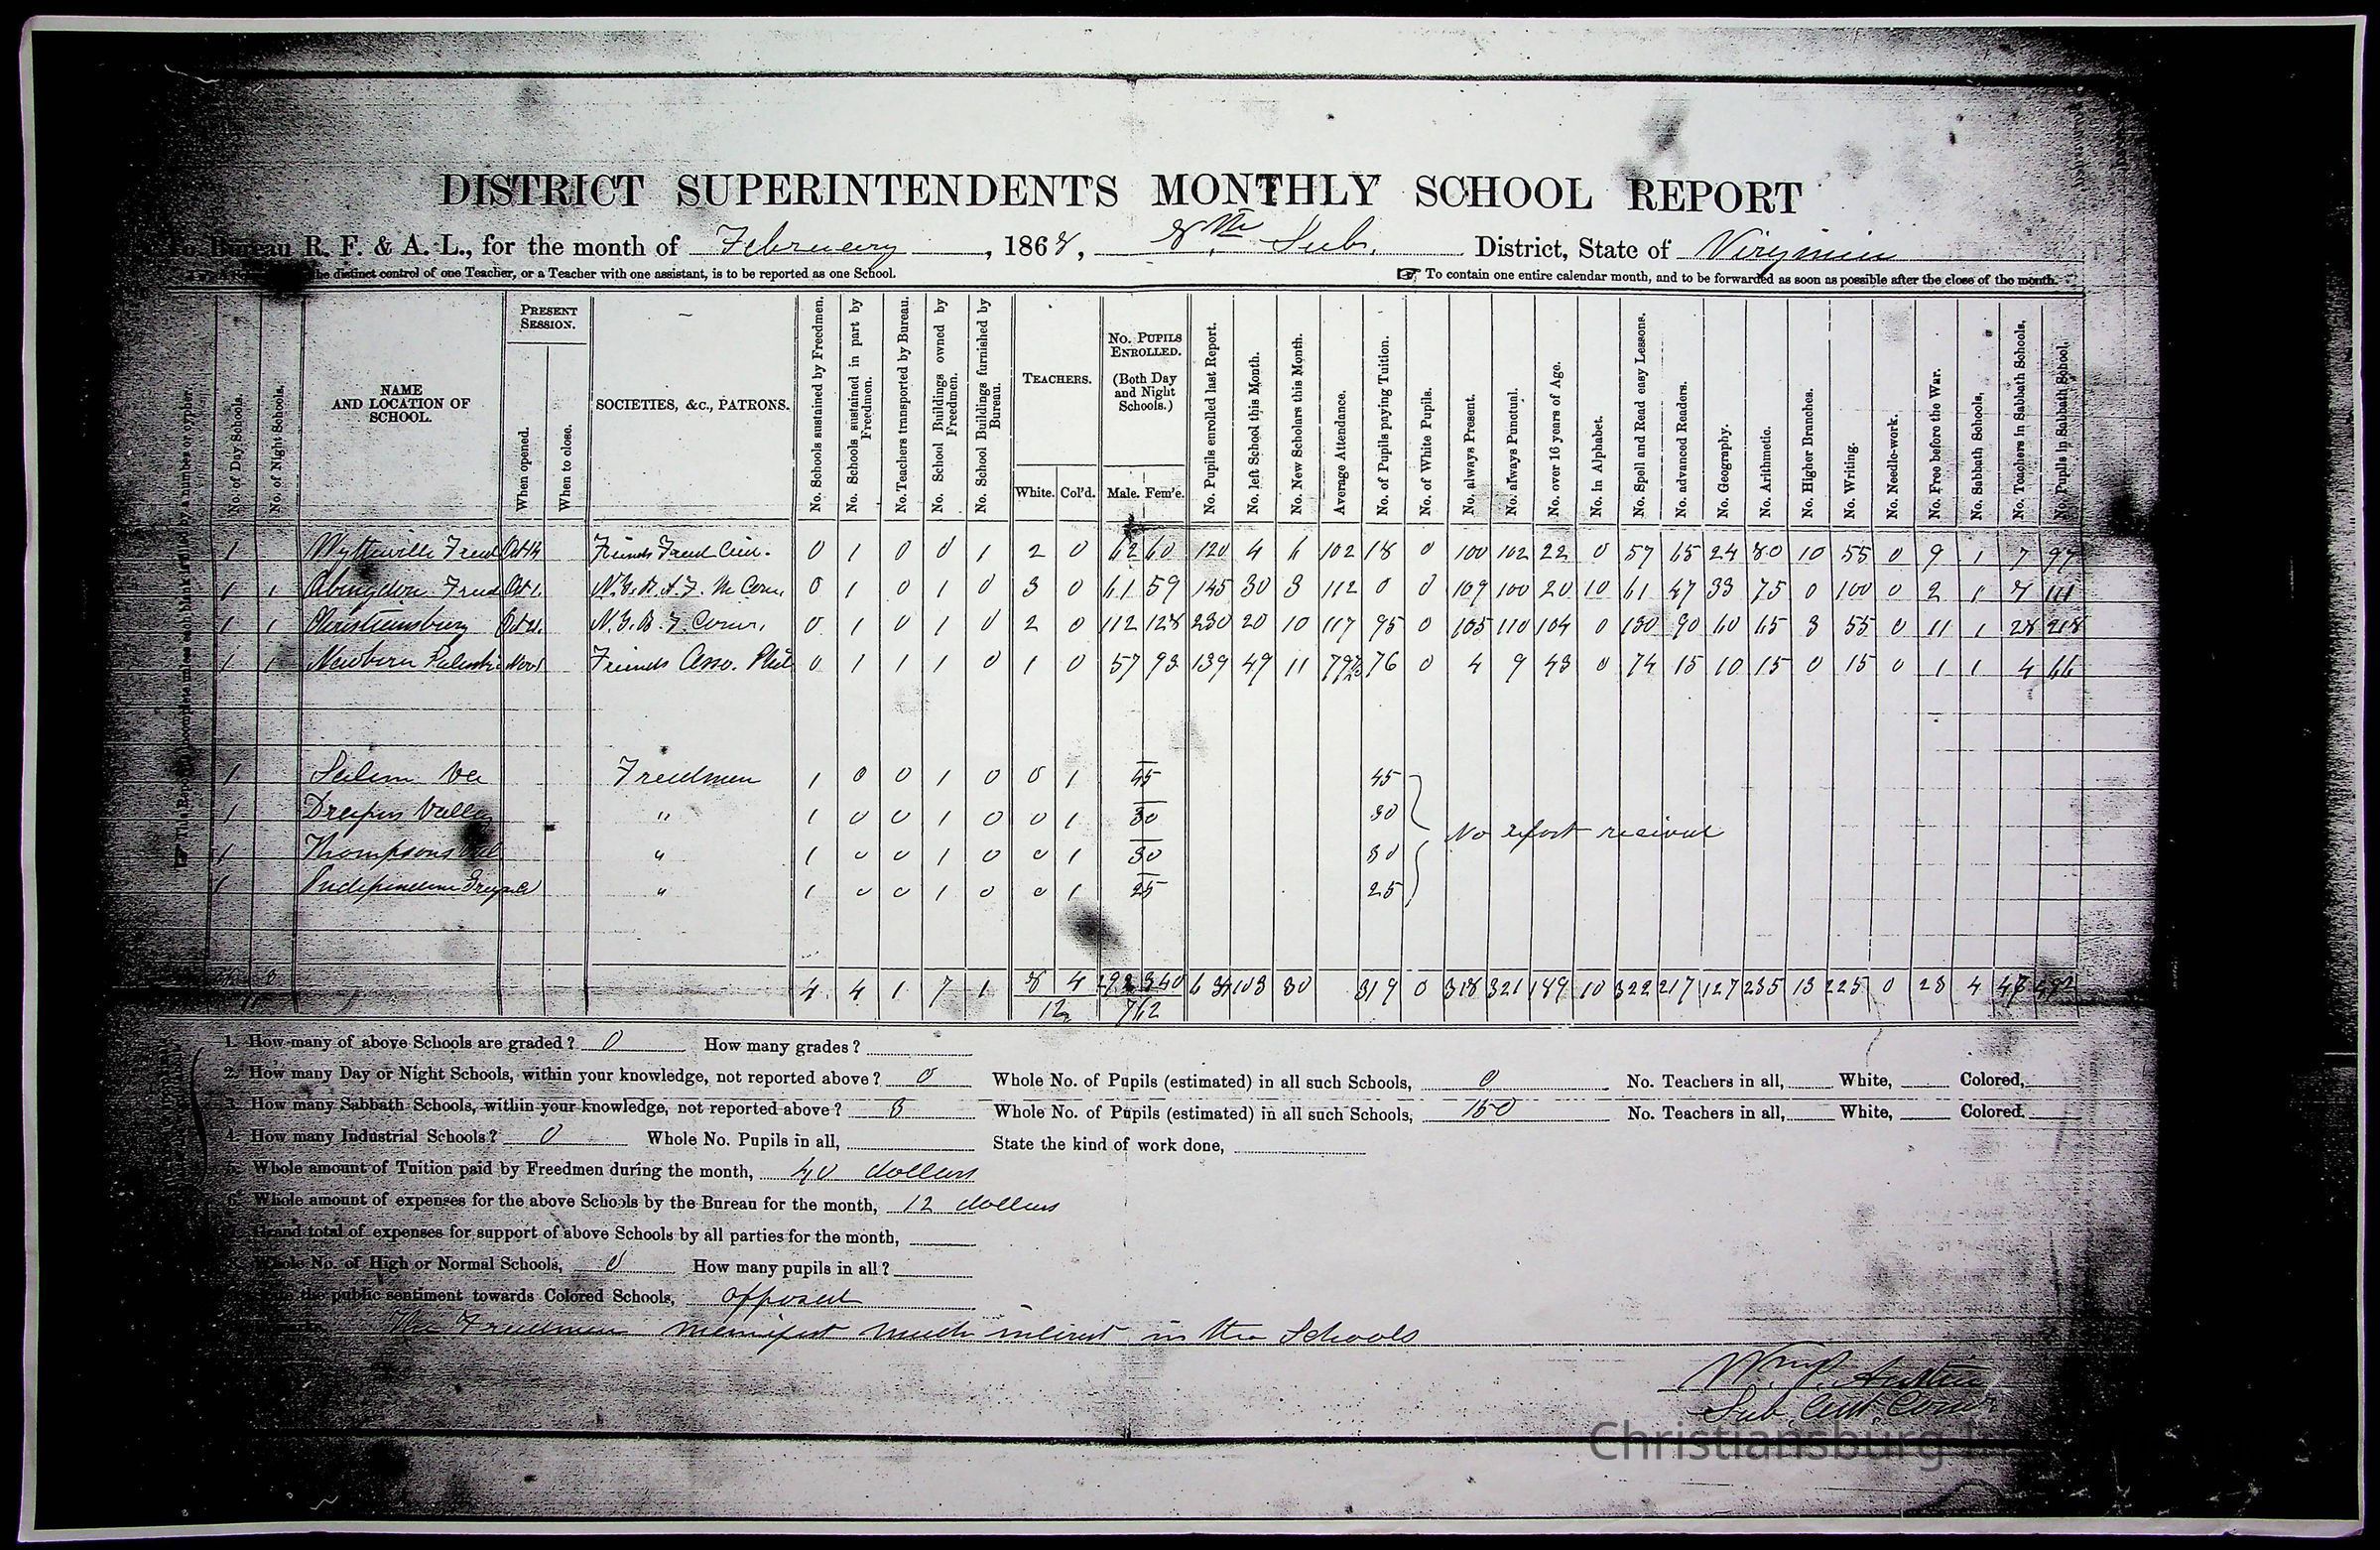 DISTRICT SUPERINTENDENT'S MONTHLY SCHOOL REPORT
To Bureau R. F. & A. L., for the month of February, 1868, 8th Sub. District, State of Virginia
the distinct control of one Teacher, or a Teacher with one assistant, is to be reported as one School.
☞ To contain one entire calendar month, and to be forwarded as soon as possible after the close of the month.
No. of Day Schools.
No. of Night Schools.
NAME AND LOCATION OF SCHOOL.
PRESENT SESSION.
When opened.
When to close.
SOCIETIES, &c., PATRONS.
No. Schools sustained by Freedmen.
No. Schools sustained in part by Freedmen.
No. Teachers transported by Bureau.
No. School Buildings owned by Freedmen.
No. School Buildings furnished by Bureau.
TEACHERS.
White. Col'd.
No. PUPILS ENROLLED.
(Both Day and Night Schools.)
Male. Fem'e.
No. Pupils enrolled last Report.
No. left School this Month.
No. New Scholars this Month.
Average Attendance.
No. of Pupils paying Tuition.
No. of White Pupils.
No. always Present.
No. always Punctual.
No. over 16 years of Age.
No. in Alphabet.
No. Spell and Read easy Lessons.
No. advanced Readers.
No. Geography.
No. Arithmetic.
No. Higher Branches.
No. Writing.
No. Needle-work.
No. Free before the War.
No. Sabbath Schools.
No. Teachers in Sabbath Schools.
No. Pupils in Sabbath School.
1 Wytheville Freed Friends Freed 0 1 0 0 1 2 0 62 60 120 4 6 102 18 0 100 102 22 0 57 65 24 80 10 55 0 9 1 7 97
1 1 Abingdon Freed Oct 1. 0 1 0 1 0 3 0 61 59 145 30 3 112 0 0 109 100 20 10 61 47 33 75 0 100 0 2 1 111
1 1 Christiansburg 0 1 0 1 0 2 0 112 128 230 20 10 117 95 0 105 110 104 0 130 90 60 65 3 55 0 11 1 28 218
1 1 Newbern Nov 1 Friends Asso. Phil 0 1 1 1 0 1 0 57 93 139 49 11 76 0 4 9 43 0 74 15 10 15 0 15 0 1 1 4 66
1 Salem Va Freedmen 1 0 0 1 0 0 1 45 45
1 Drapers Valley " 1 0 0 1 0 0 1 30 30
1 " 1 0 0 1 0 0 1 30 30
1 " 1 0 0 1 0 0 1 25 25
No report recieved
3 4 4 1 7 1 8 4 292 340 634 103 30 319 0 318 321 189 10 322 217 127 235 13 225 0 23 4
12 762
1. How many of above Schools are graded? 0 How many grades?
2. How many Day or Night Schools, within your knowledge, not reported above? 0 Whole No. of Pupils (estimated) in all such Schools, 0 No. Teachers in all, White, Colored,
3. How many Sabbath Schools, within your knowledge, not reported above? 3 Whole No. of Pupils (estimated) in all such Schools, 150 No. Teachers in all, White, Colored.
4. How many Industrial Schools? 0 Whole No. Pupils in all, State the kind of work done,
5. Whole amount of Tuition paid by Freedmen during the month, 40 dollars
6. Whole amount of expenses for the above Schools by the Bureau for the month, 12 dollars
Grand total of expenses for support of above Schools by all parties for the month,
Whole No. of High or Normal Schools, 0 How many pupils in all?
the public sentiment towards Colored Schools, opposed
The Freedmen manifest much interest in the Schools
Wm. P. Austin
Christiansburg